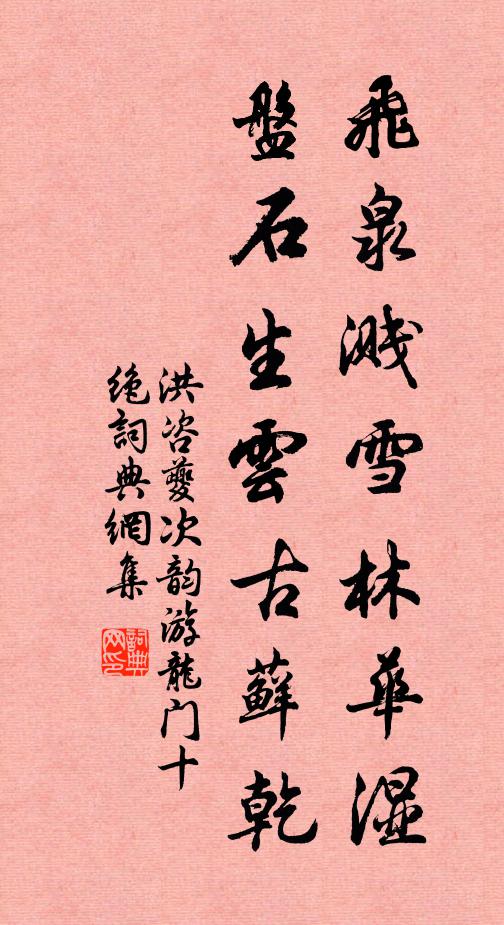 飛泉濺雪林華湿
盤石生雲古蘚乾
洪咨夔次韵游龍门十
绝詞典網集
詞典网印